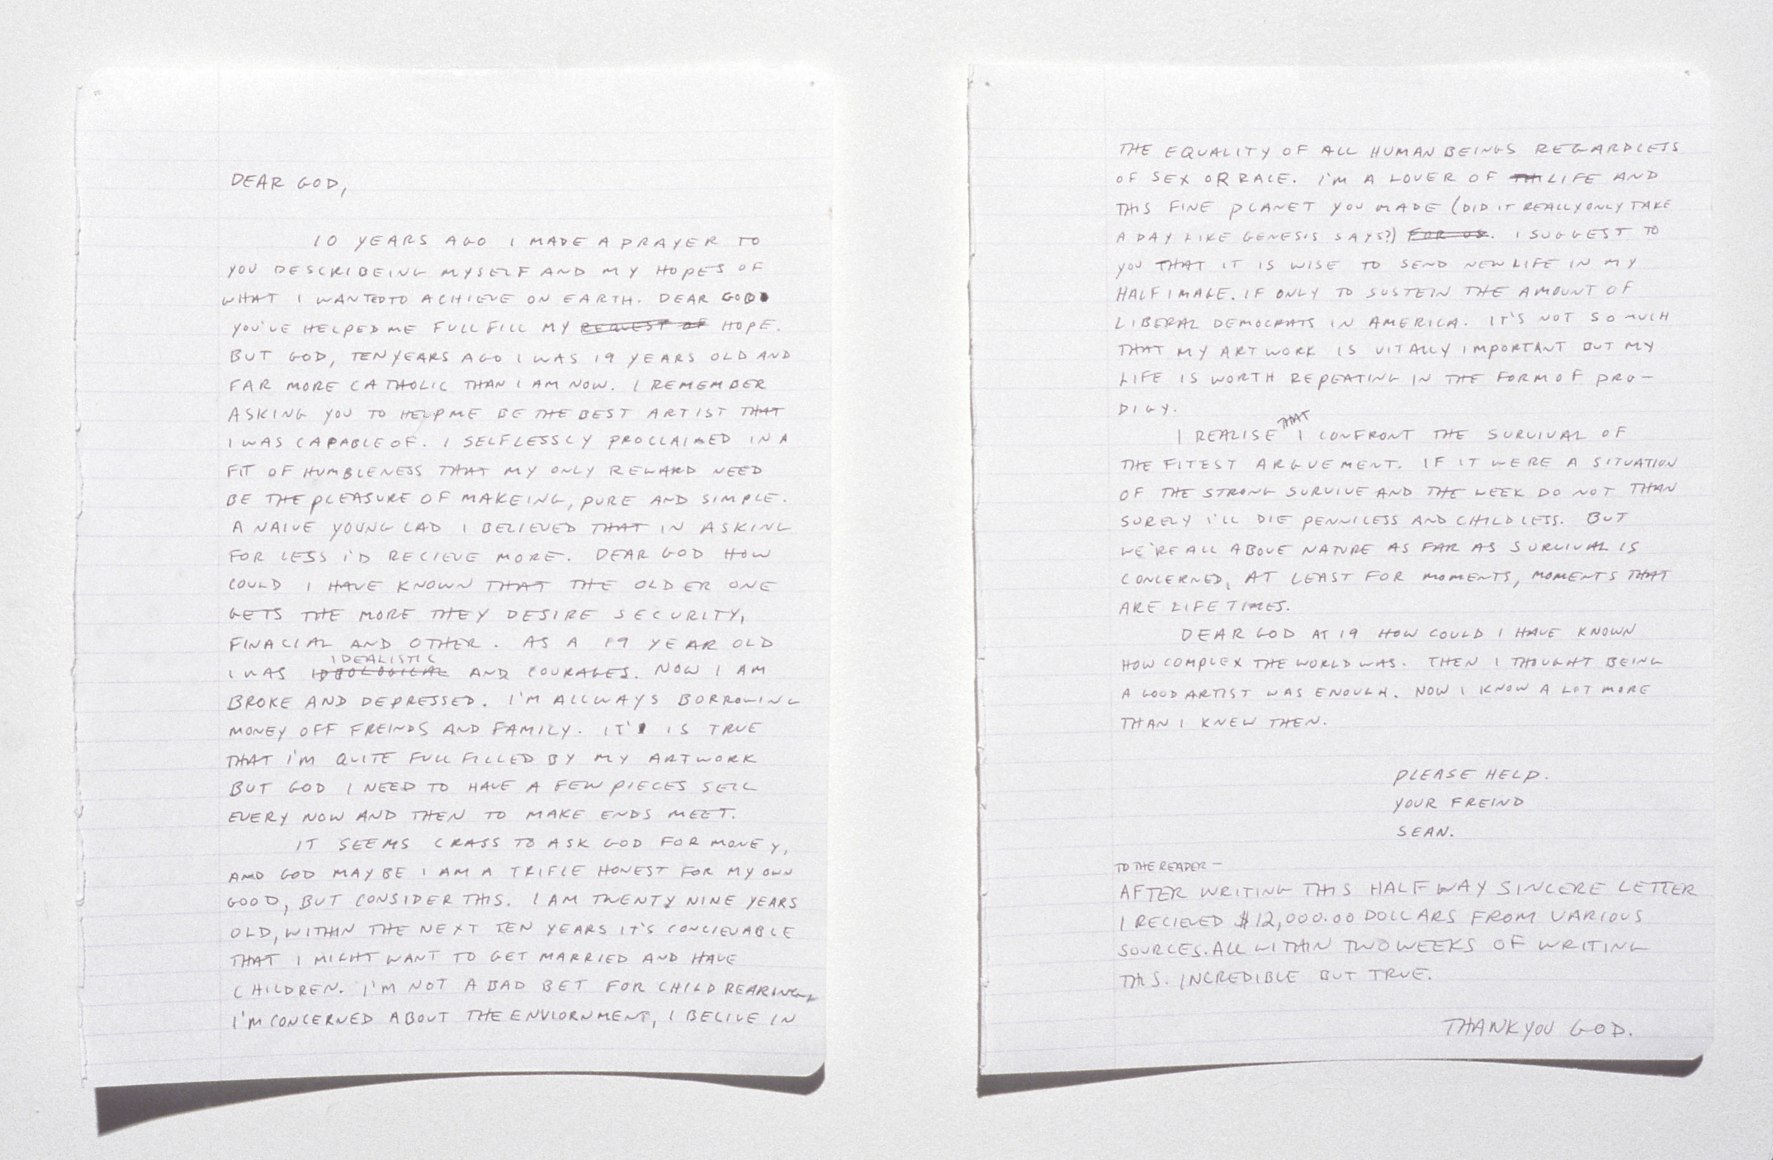 DEAR GOD,
10 YEARS AGO I MADE A PRAYER TO
YOU DESCRIBEING MYSELF AND MY HOPES OF
WHAT I WANTED TO ACHIEVE ON EARTH. DEAR GOD
YOU'VE HELPED ME FULLFILL MY REQUEST OF HOPE.
BUT GOD, TEN YEARS AGO I WAS 19 YEARS OLD AND
FAR MORE CATHOLIC THAN I AM NOW. I REMEMBER
ASKING YOU TO HELP ME BE THE BEST ARTIST THAT
I WAS CAPABLE OF. I SELFLESSLY PROCLAIMED IN A
FIT OF HUMBLENESS THAT MY ONLY REWARD NEED
BE THE PLEASURE OF MAKEING, PURE AND SIMPLE.
A NAIVE YOUNG LAD I BELIEVED THAT IN ASKING
FOR LESS I'D RECIEVE MORE. DEAR GOD HOW
COULD I HAVE KNOWN THAT THE OLDER ONE
GETS THE MORE THEY DESIRE SECURITY,
FINACIAL AND OTHER. AS A 19 YEAR OLD
I WAS IDEOLOGICAL IDEALISTIC AND COURAGES. NOW I AM
BROKE AND DEPRESSED. I'M ALLWAYS BORROWING
MONEY OFF FREINDS AND FAMILY. IT IS TRUE
THAT I'M QUITE FULLFILLED BY MY ARTWORK
BUT GOD I NEED TO HAVE A FEW PIECES SELL
EVERY NOW AND THEN TO MAKE ENDS MEET.
IT SEEMS CRASS TO ASK GOD FOR MONEY,
AND GOD MAYBE I AM A TRIFLE HONEST FOR MY OWN
GOOD, BUT CONSIDER THIS. I AM TWENTY NINE YEARS
OLD, WITHIN THE NEXT TEN YEARS IT'S CONCIEVABLE
THAT I MIGHT WANT TO GET MARRIED AND HAVE
CHILDREN. I'M NOT A BAD BET FOR CHILD REARING,
I'M CONCERNED ABOUT THE ENVIORNMENT, I BELIVE IN
THE EQUALITY OF ALL HUMAN BEINGS REGARDLESS
OF SEX OR RACE. I'M A LOVER OF LIFE AND
THIS FINE PLANET YOU MADE (DID IT REALLY ONLY TAKE
A DAY LIKE GENESIS SAYS?) FOR US. I SUGGEST TO
YOU THAT IT IS WISE TO SEND NEW LIFE IN MY
HALF IMAGE. IF ONLY TO SUSTEIN THE AMOUNT OF
LIBERAL DEMOCRATS IN AMERICA. IT'S NOT SO MUCH
THAT MY ARTWORK IS VITALLY IMPORTANT BUT MY
LIFE IS WORTH REPEATING IN THE FORM OF PRO-
DIGY.
I REALISE THAT I CONFRONT THE SURVIVAL OF
THE FITEST ARGUEMENT. IF IT WERE A SITUATION
OF THE STRONG SURVIVE AND THE WEEK DO NOT THAN
SURELY I'LL DIE PENNILESS AND CHILDLESS. BUT
WE'RE ALL ABOVE NATURE AS FAR AS SURVIVAL IS
CONCERNED, AT LEAST FOR MOMENTS, MOMENTS THAT
ARE LIFETIMES.
DEAR GOD AT 19 HOW COULD I HAVE KNOWN
HOW COMPLEX THE WORLD WAS. THEN I THOUGHT BEING
A GOOD ARTIST WAS ENOUGH. NOW I KNOW A LOT MORE
THAN I KNEW THEN.
PLEASE HELP.
YOUR FREIND
SEAN.
TO THE READER—
AFTER WRITING THIS HALFWAY SINCERE LETTER
I RECIEVED $12,000.00 DOLLARS FROM VARIOUS
SOURCES. ALL WITHIN TWO WEEKS OF WRITING
THIS. INCREDIBLE BUT TRUE.
THANK YOU GOD.